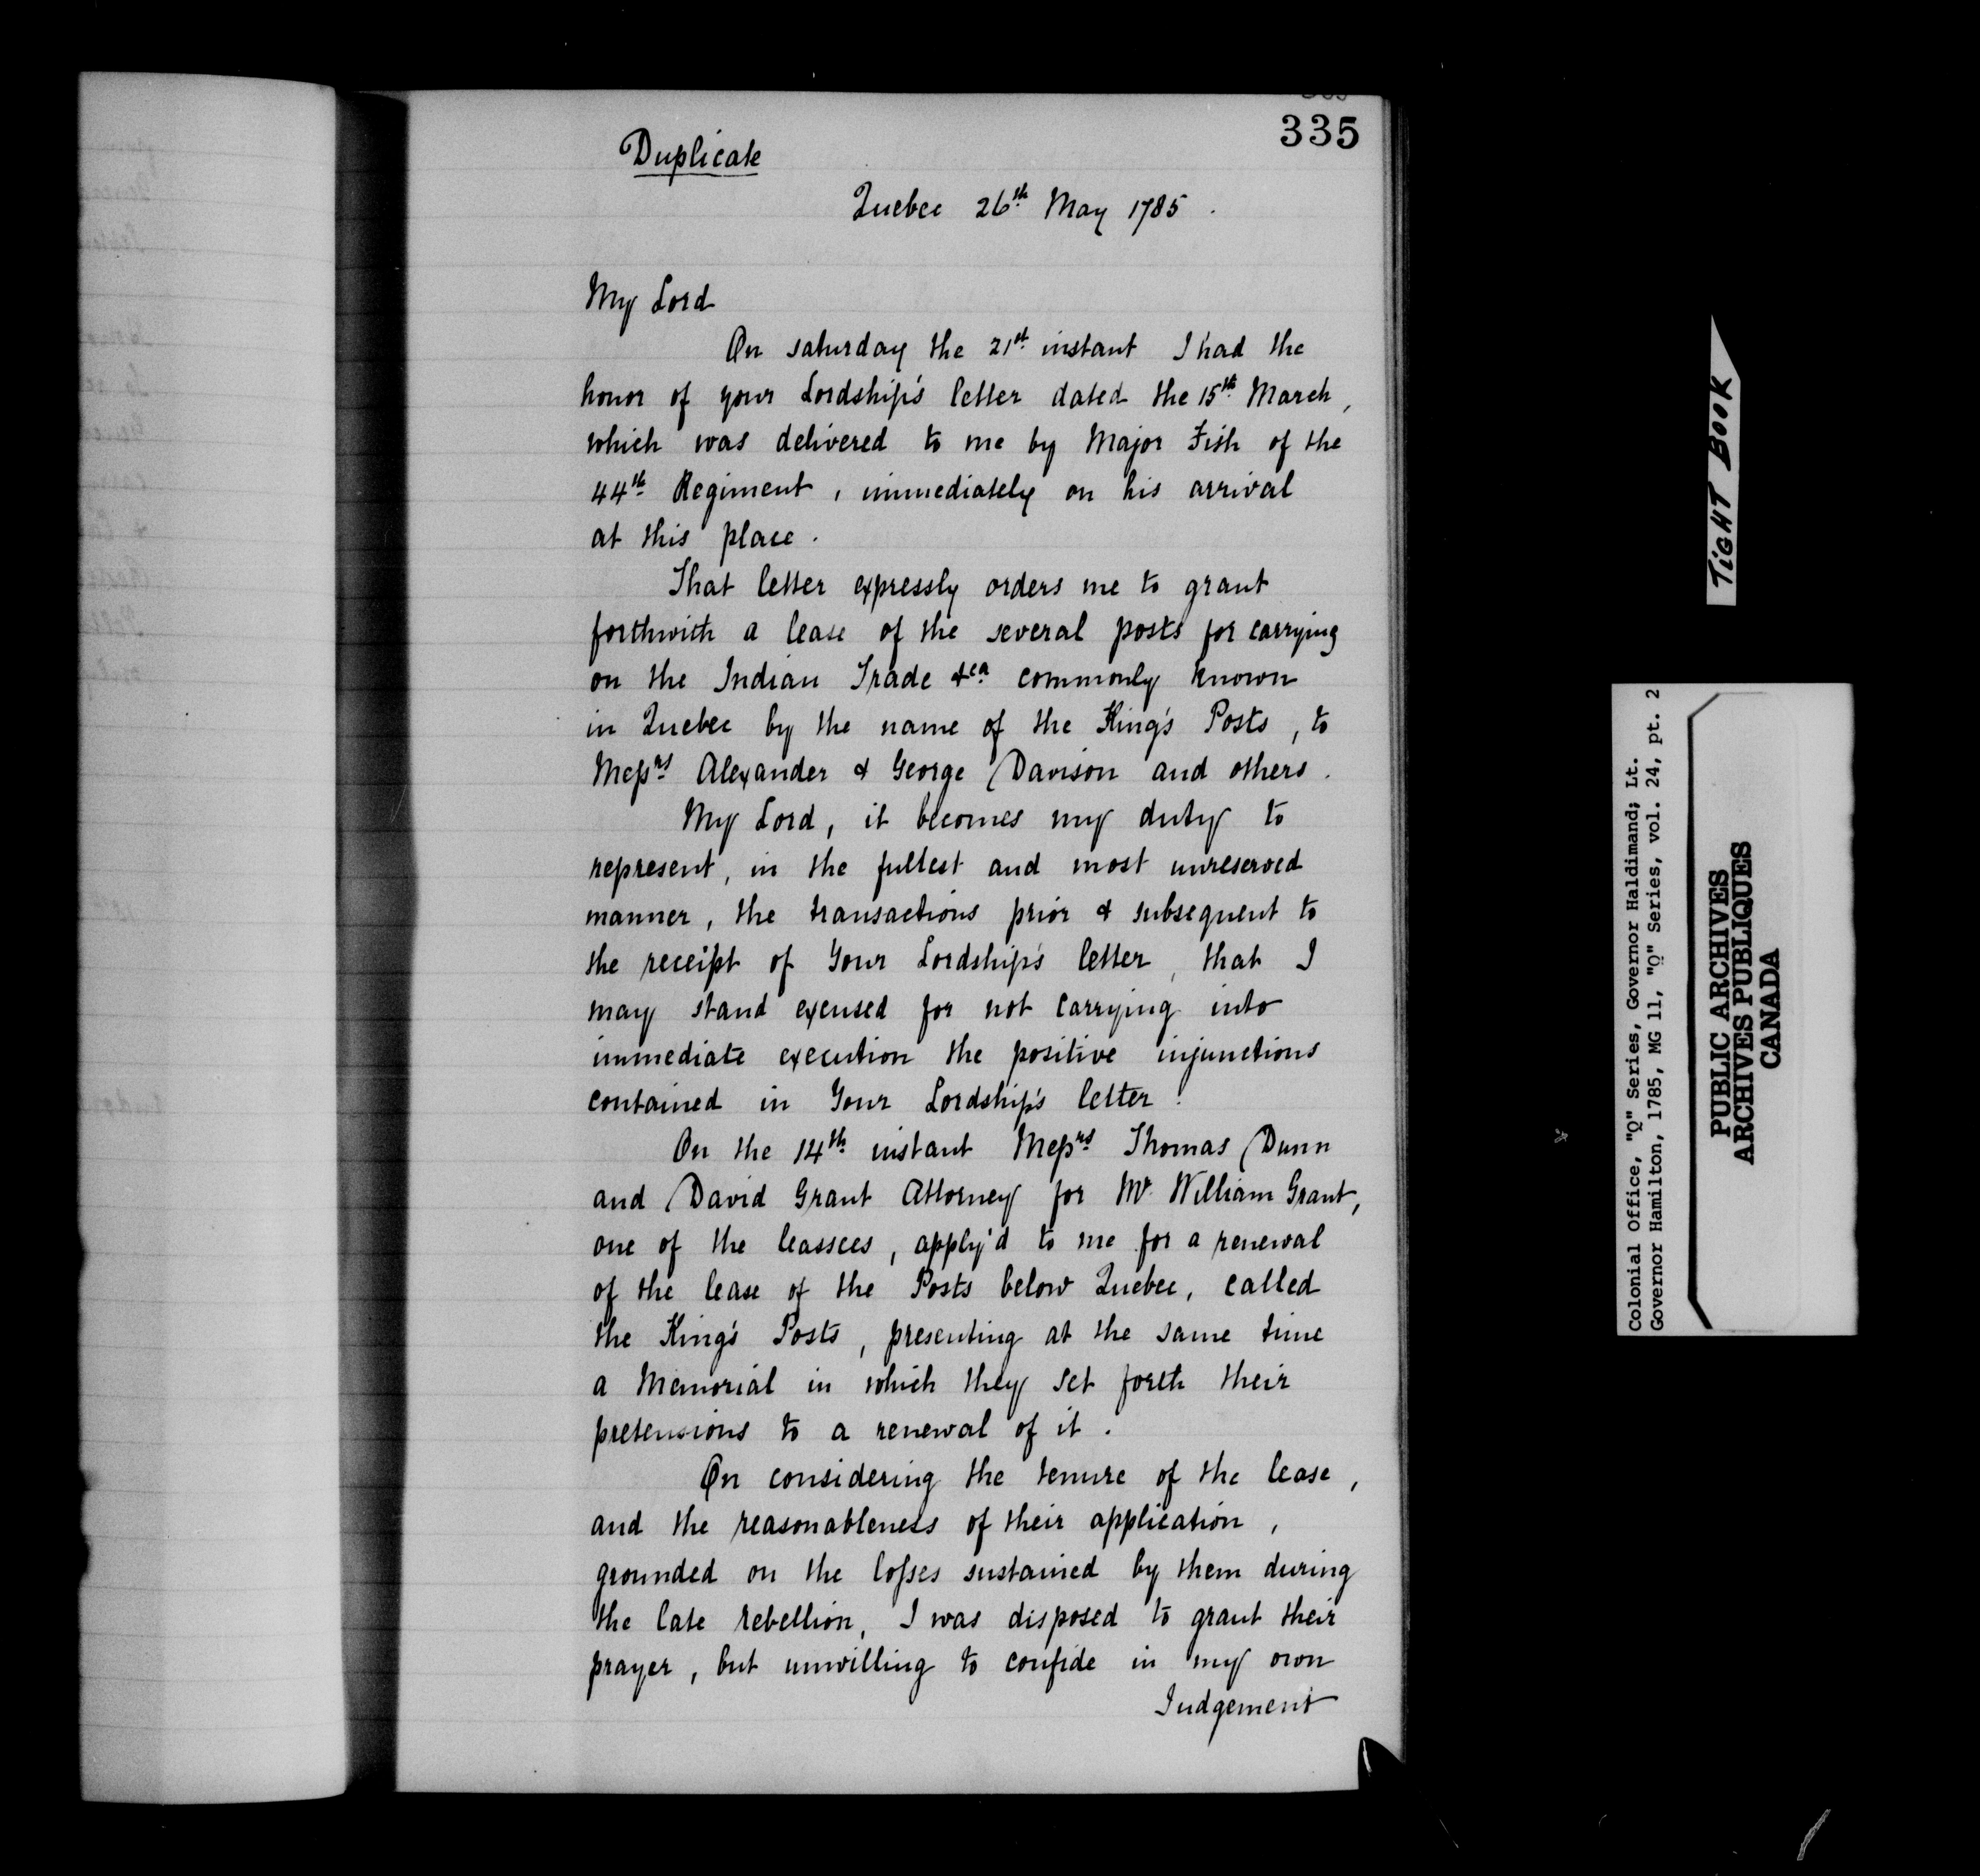 335
Duplicate
Quebec 26th May 1785.
My Lord
On saturday the 21st instant I had the
honor of your Lordship's letter dated the 15th March,
which was delivered to me by Major Fish of the
44th Regiment, immediately on his arrival
at this place.
That letter expressly orders me to grant
forthwith a lease of the several posts for carrying
on the Indian Trade &ca commonly known
in Quebec by the name of the King's Posts, to
Messrs Alexander & George Davison and others.
My Lord, it becomes my duty to
represent, in the fullest and most unreserved
manner, the transactions prior & subsequent to
the receipt of Your Lordship's letter, that I
may stand excused for not carrying into
immediate execution the positive injunctions
contained in Your Lordship's letter.
On the 14th instant Messrs Thomas Dunn
and David Grant Attorney for Mr William Grant,
one of the leassees, apply'd to me for a renewal
of the lease of the Posts below Quebec, called
the King's Posts, presenting at the same time
a Memorial in which they set forth their
pretensions to a renewal of it.
On considering the tenure of the lease,
and the reasonableness of their application,
grounded on the losses sustained by them during
the late rebellion, I was disposed to grant their
prayer, but unwilling to confide in my own
Judgement
TIGHT BOOK
Colonial Office, "Q" Series, Governor Haldimand; Lt.
Governor Hamilton, 1785, MG 11, "Q" Series, vol. 24, pt. 2
PUBLIC ARCHIVES
ARCHIVES PUBLIQUES
CANADA